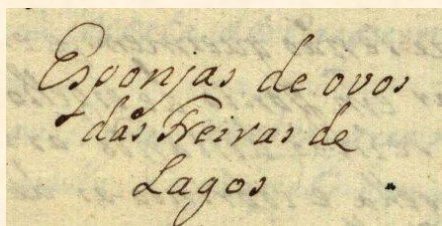 Esponjas de ovos
das Freiras de
Lagos